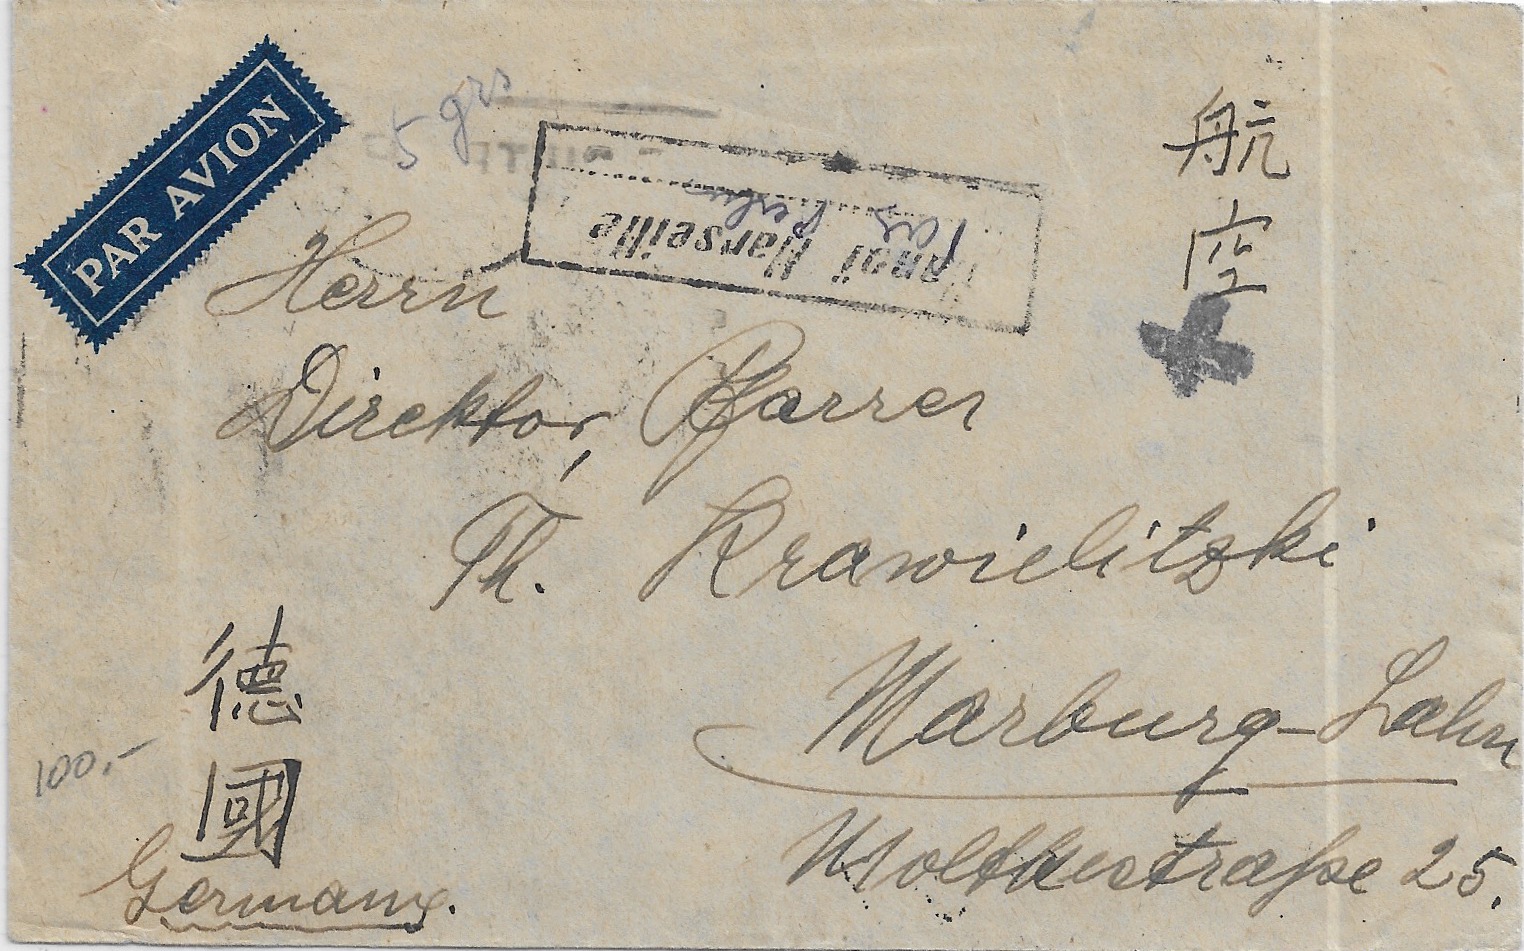 PAR AVION
5 grs
航
空
Hanoï Marseille
Herrn
Direktor, Pfarrer
Th. Krawielitzki
Marburg-Lahn
Moltkestraße 25.
德
國
100.-
Germany.